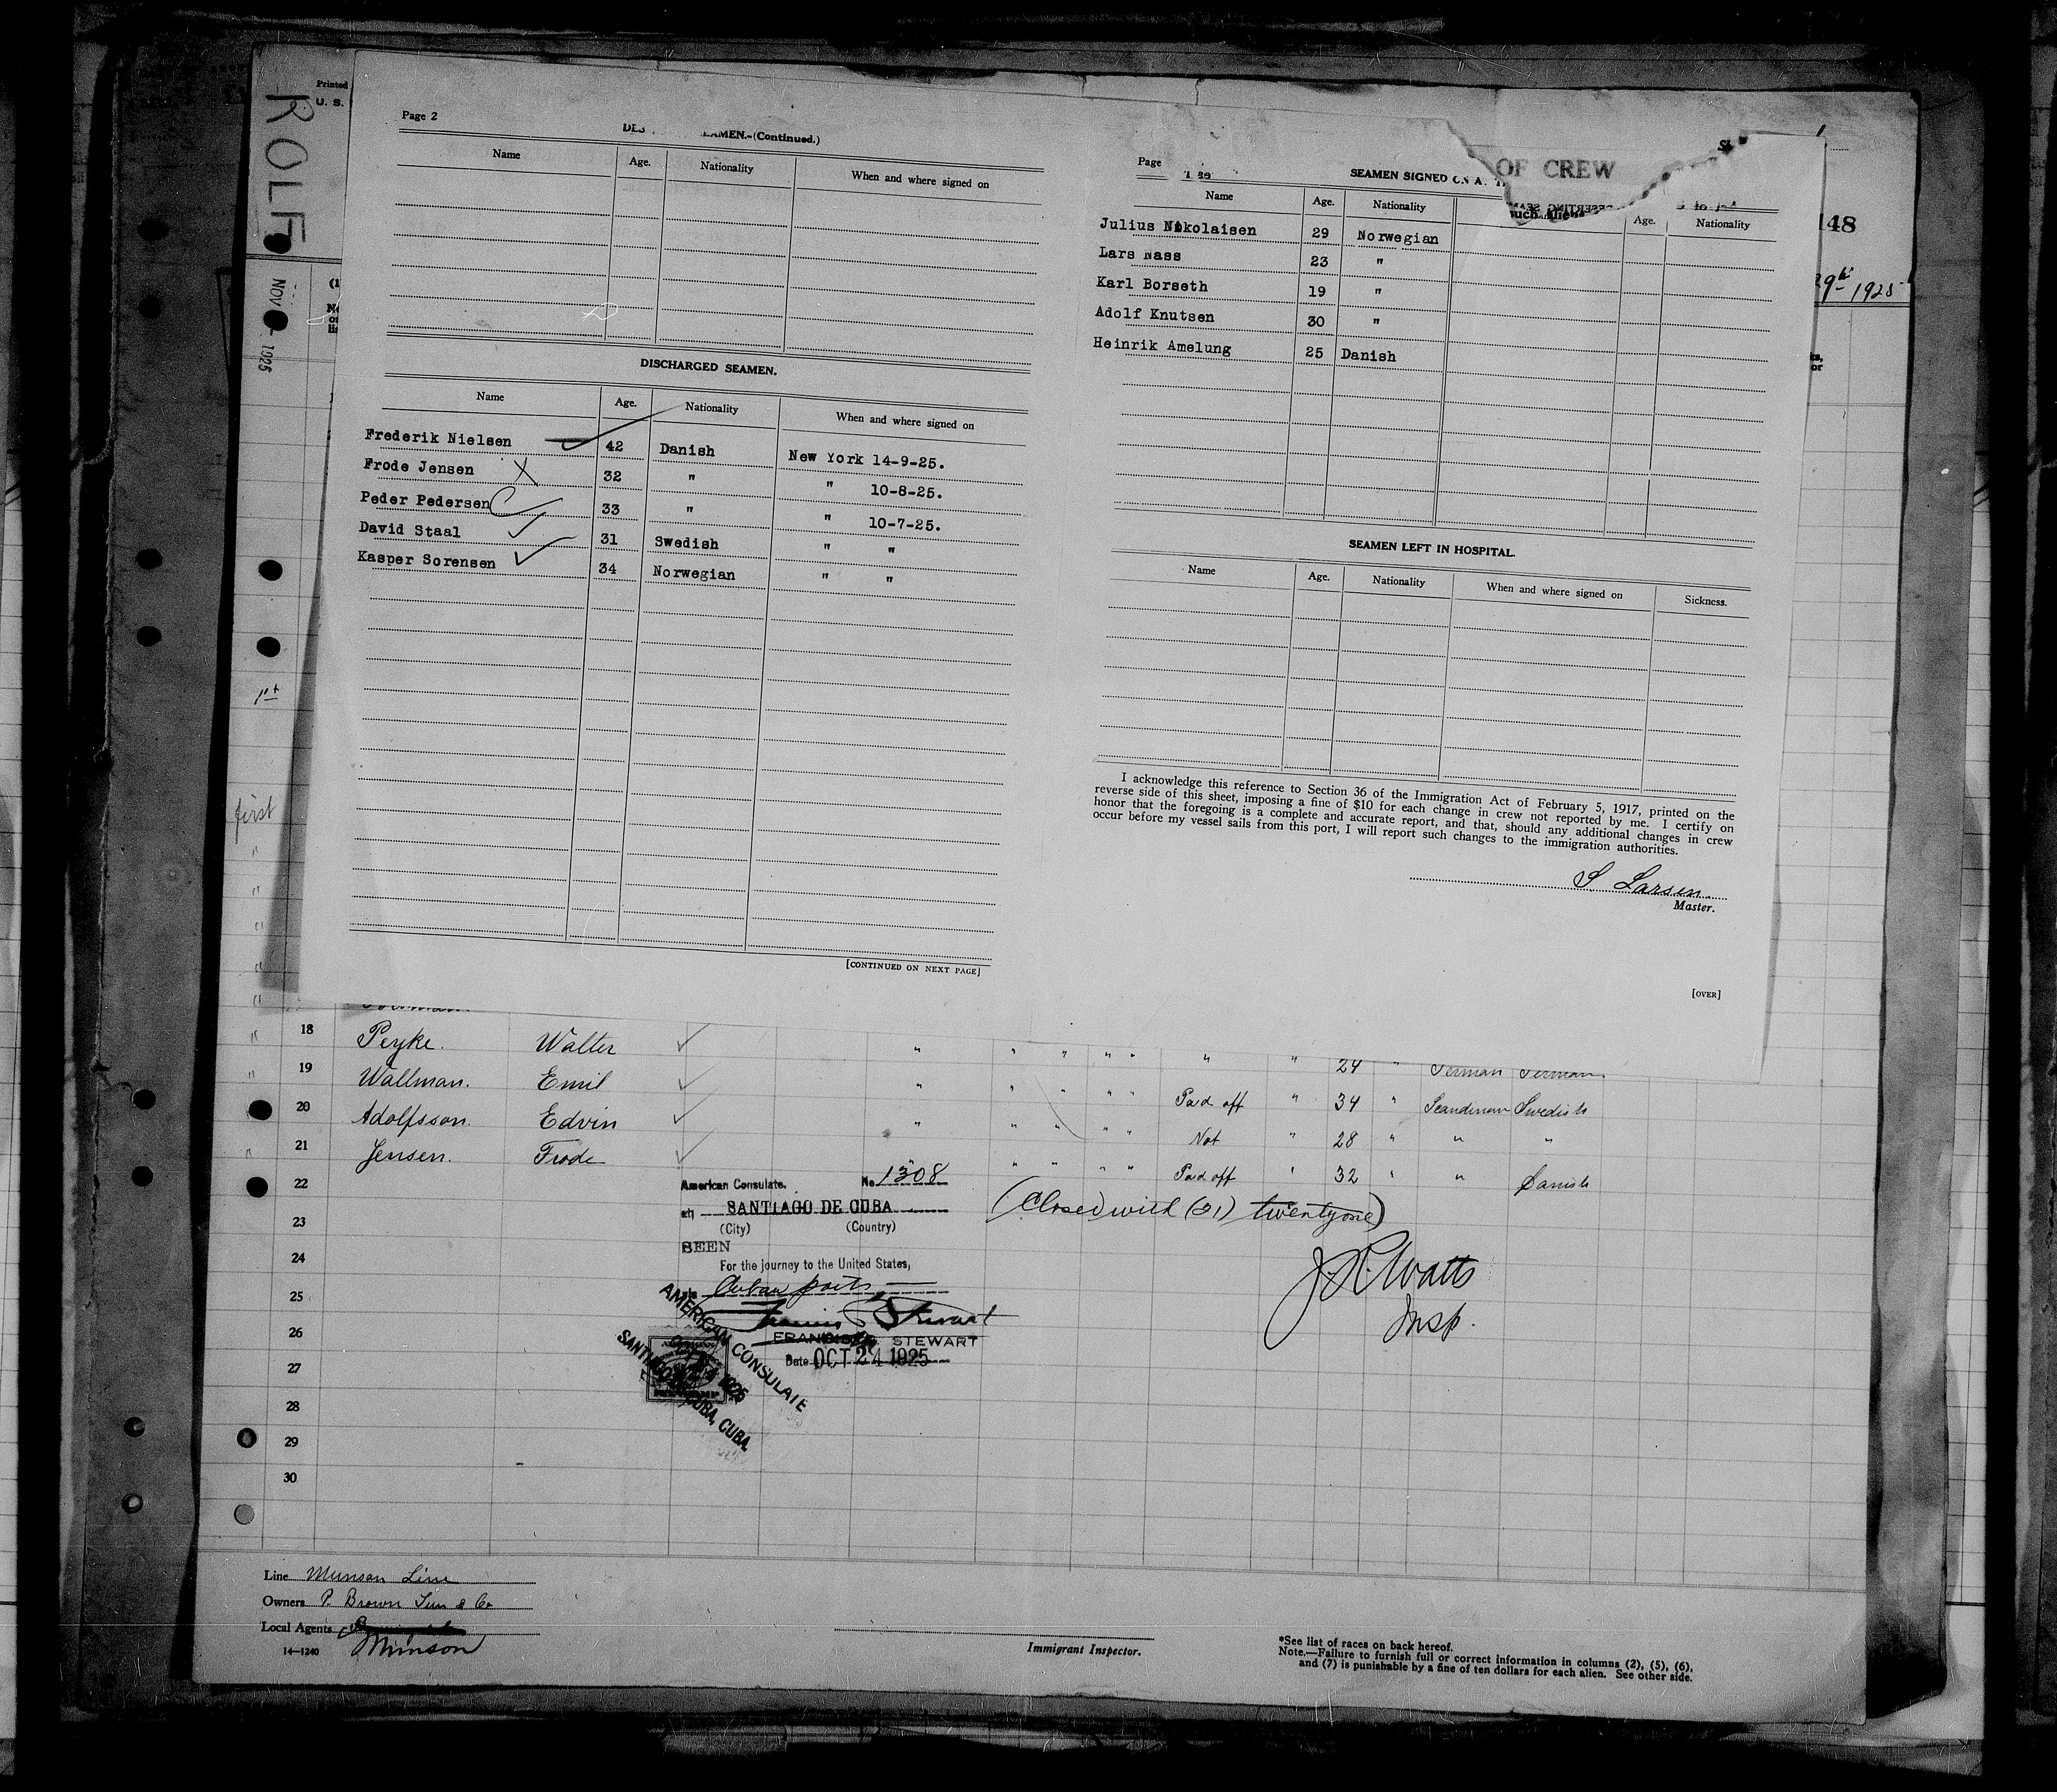 ROLF
NOV 1925
Printed
U. S.
Page 2
EAMEN.-(Continued.)
Name Age. Nationality When and where signed on
DISCHARGED SEAMEN.
Name Age. Nationality When and where signed on
Frederik Nielsen 42 Danish New York 14-9-25.
Frode Jensen 32 " " 10-8-25.
Peder Pedersen 33 " " 10-7-25.
David Staal 31 Swedish " "
Kasper Sorensen 34 Norwegian " "
[CONTINUED ON NEXT PAGE]
Page
SEAMEN SIGNED
OF CREW
Name Age. Nationality Age. Nationality
Julius Nikolaisen 29 Norwegian
Lars Nass 23 "
Karl Borseth 19 "
Adolf Knutsen 30 "
Heinrik Amelung 25 Danish
SEAMEN LEFT IN HOSPITAL.
Name Age. Nationality When and where signed on Sickness.
I acknowledge this reference to Section 36 of the Immigration Act of February 5, 1917, printed on the
reverse side of this sheet, imposing a fine of $10 for each change in crew not reported by me. I certify on
honor that the foregoing is a complete and accurate report, and that, should any additional changes in crew
occur before my vessel sails from this port, I will report such changes to the immigration authorities.
S Larsen.
Master.
[OVER]
148
29th 1925
1st
first
18 Peyke. Walter " " " " " " " 24 " German German
19 Wallman. Emil " " " " " Paid off " 34 " Scandinavn Swedish
20 Adolfsson. Edvin " " " " " Not " 28 " " "
21 Jensen. Frode " " " " " Paid off " 32 " " Danish
22
23
24
25
26
27
28
29
30
American Consulate. No 1308
at SANTIAGO DE CUBA
(City) (Country)
SEEN
For the journey to the United States,
via Cuban ports
Francis R Stewart
FRANCIS R. STEWART
Date OCT 24 1925
AMERICAN CONSULATE
SANTIAGO DE CUBA, CUBA.
(Closed with (21) twentyone)
J.R. Watts
Insp.
Line Munson Line
Owners P. Brown Jun & Co
Local Agents Munson
14—1240
Immigrant Inspector.
*See list of races on back hereof.
Note.—Failure to furnish full or correct information in columns (2), (5), (6),
and (7) is punishable by a fine of ten dollars for each alien. See other side.